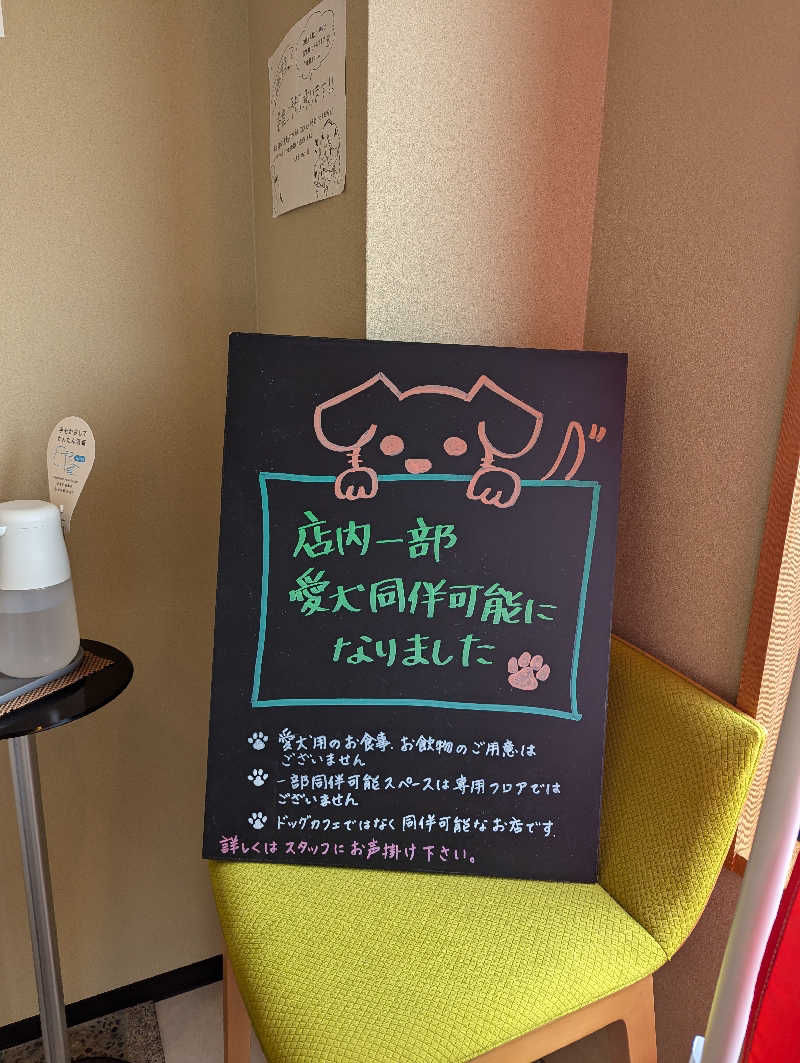 手をかざして
かんたん消毒
店内一部
愛犬同伴可能に
なりました
愛犬用のお食事、お飲物のご用意は
ございません
一部同伴可能スペースは専用フロアでは
ございません
ドッグカフェではなく同伴可能なお店です.
詳しくはスタッフにお声掛け下さい。